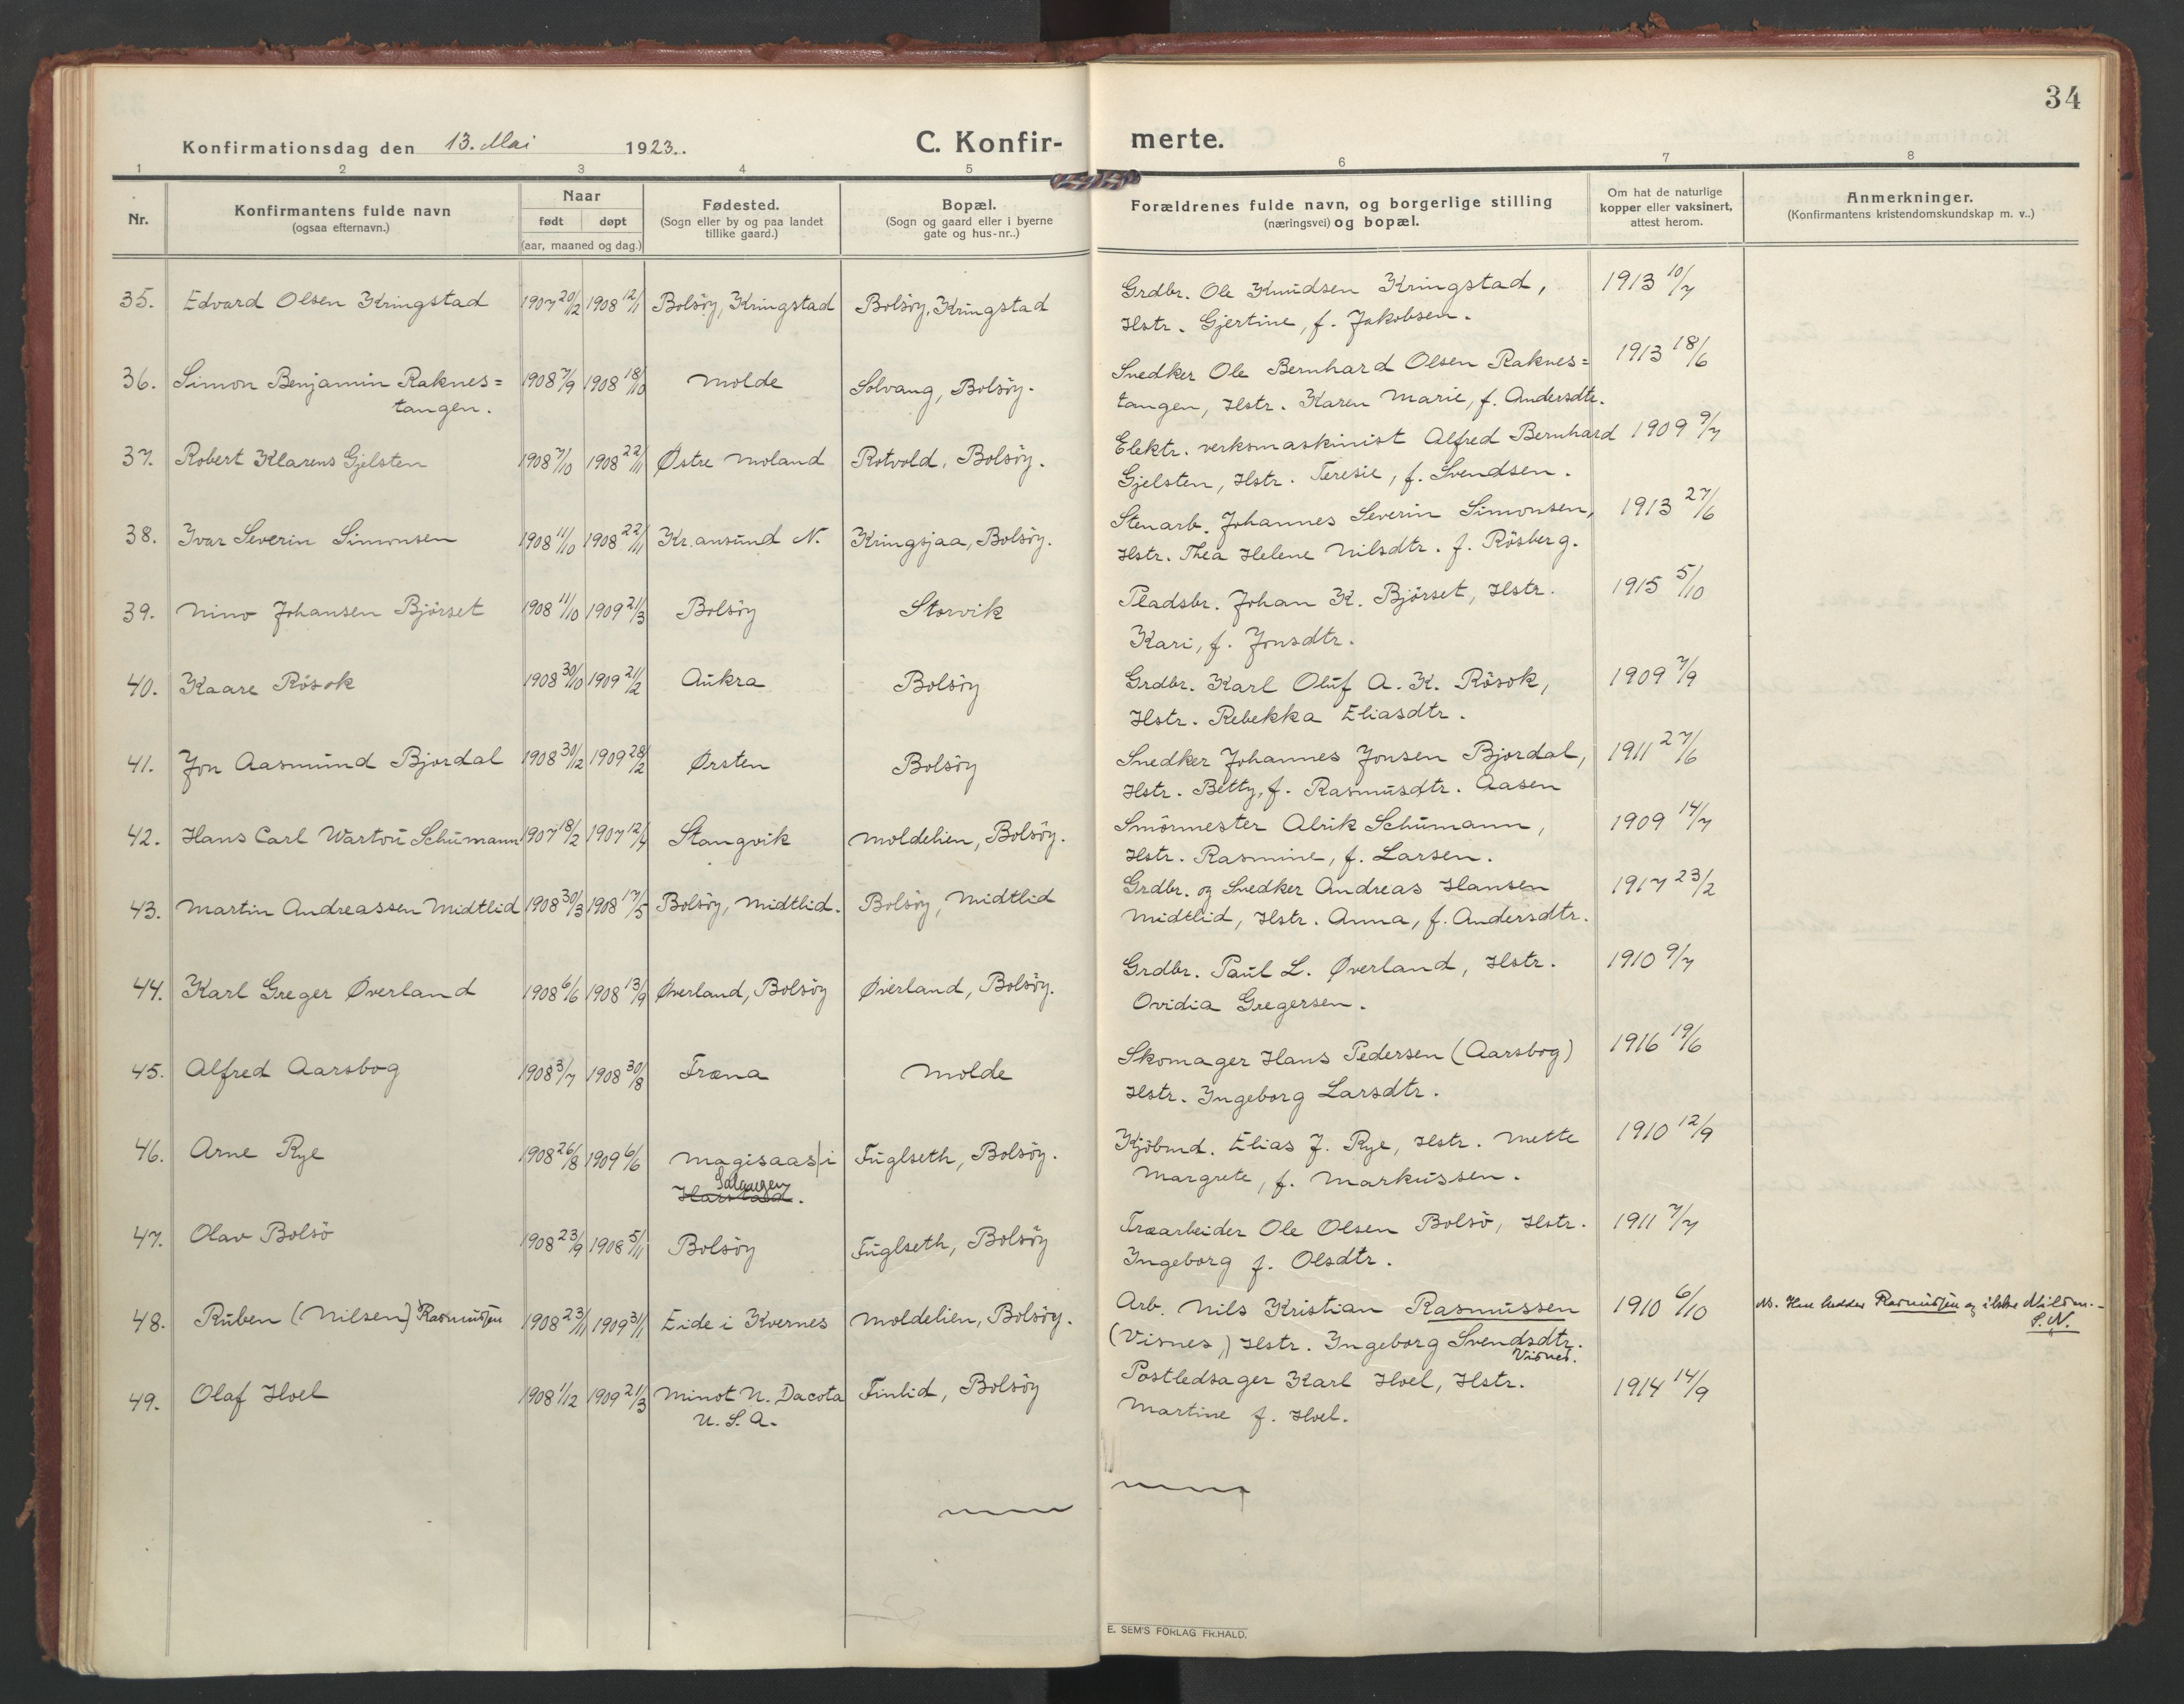 34
Konfirmationsdag den 13. Mai 1923.
C. Konfir-
merte.
1 2 3 4 5 6 7 8
Nr.
Konfirmantens fulde navn
(ogsaa efternavn.)
Naar
født døpt
(aar, maaned og dag.)
Fødested.
(Sogn eller by og paa landet
tillike gaard.)
Bopæl.
(Sogn og gaard eller i byerne
gate og hus-nr..)
Forældrenes fulde navn, og borgerlige stilling
(næringsvei) og bopæl.
Om hat de naturlige
kopper eller vaksinert,
attest herom.
Anmerkninger.
(Konfirmantens kristendomskundskap m. v..)
35. Edvard Olsen Kringstad 1907 20/12 1908 12/1 Bolsöy, Kringstad Bolsöy, Kringstad Grdbr. Ole Knudsen Kringstad, 1913 10/7
Hstr. Gjertine, f. Jakobsen.
36. Simon Benjamin Raknes= 1908 7/9 1908 18/10 Molde Solvang, Bolsöy. Snedker Ole Bernhard Olsen Raknes= 1913 18/6
tangen. tangen, Hstr. Karen Marie, f. Andersdtr.
37. Robert Klarens Gjelsten 1908 7/10 1908 22/11 Østre Moland Rotvold, Bolsöy. Elektr. verksmaskinist Alfred Bernhard 1909 9/7
Gjelsten, Hstr. Teresie, f. Svendsen.
38. Ivar Severin Simonsen 1908 11/10 1908 22/11 Kr.ansund N. Kringsjaa, Bolsöy. Stenarb. Johannes Severin Simonsen, 1913 27/6
Hstr. Thea Helene Nilsdtr. f. Rösberg.
39. Nino Johansen Bjórset 1908 11/10 1909 21/3 Bolsöy Storvik Pladsbr. Johan K. Björset, Hstr. 1915 5/10
Kari, f. Jonsdtr.
40. Kaare Rösok 1908 30/10 1909 21/2 Aukra Bolsöy Grdbr. Karl Oluf A. K. Rösok, 1909 7/9
Hstr. Rebekka Eliasdtr.
41. Jon Aasmund Bjordal 1908 30/12 1909 28/2 Ørsten Bolsöy Snedker Johannes Jonsen Bjordal, 1911 27/6
Hstr. Betty, f. Rasmusdtr. Aasen
42. Hans Carl Wartou Schumann 1907 18/2 1907 12/4 Stangvik Moldelien, Bolsöy. Smörmester Alrik Schumann, 1909 14/7
Hstr. Rasmine, f. Larsen.
43. Martin Andreassen Midtlid 1908 30/3 1908 17/5 Bolsöy, Midtlid. Bolsöy, Midtlid Grdbr. og Snedker Andreas Hansen 1917 23/2
Midtlid, Hstr. Anna, f. Andersdtr.
44. Karl Greger Øverland 1908 6/6 1908 13/9 Øverland, Bolsöy Øverland, Bolsöy. Grdbr. Paul L. Øverland, Hstr. 1910 9/7
Ovidia Gregersen.
45. Alfred Aarsbog 1908 3/7 1908 30/8 Fræna Molde Skomager Hans Pedersen (Aarsbog) 1916 19/6
Hstr. Ingeborg Larsdtr.
46. Arne Rye 1908 26/8 1909 6/6 Magisaas i Fuglseth, Bolsöy. Kjöbmd. Elias J. Rye, Hstr. Mette 1910 12/9
Salangen Harstad. Margrete, f. Markussen.
47. Olav Bolsö 1908 23/9 1908 5/11 Bolsöy Fuglseth, Bolsöy Træarbeider Ole Olsen Bolsö, Hstr. 1911 7/7
Ingeborg f. Olsdtr.
48. Ruben (Nilsen) Rasmussen 1908 23/11 1909 31/1 Eide i Kvernes Moldelien, Bolsöy. Arb. Nils Kristian Rasmussen 1910 6/10 Rasmussen og ikke
(Visnes,) Hstr. Ingeborg Svendsdtr. S.N.
Visnes.
49. Olaf Hoel 1908 1/12 1909 21/3 Minot N. Dacota Finlid, Bolsöy Postledsager Karl Hoel, Hstr. 1914 14/9
U. S. A. Martine f. Hoel.
E. SEM'S FORLAG FR.HALD.